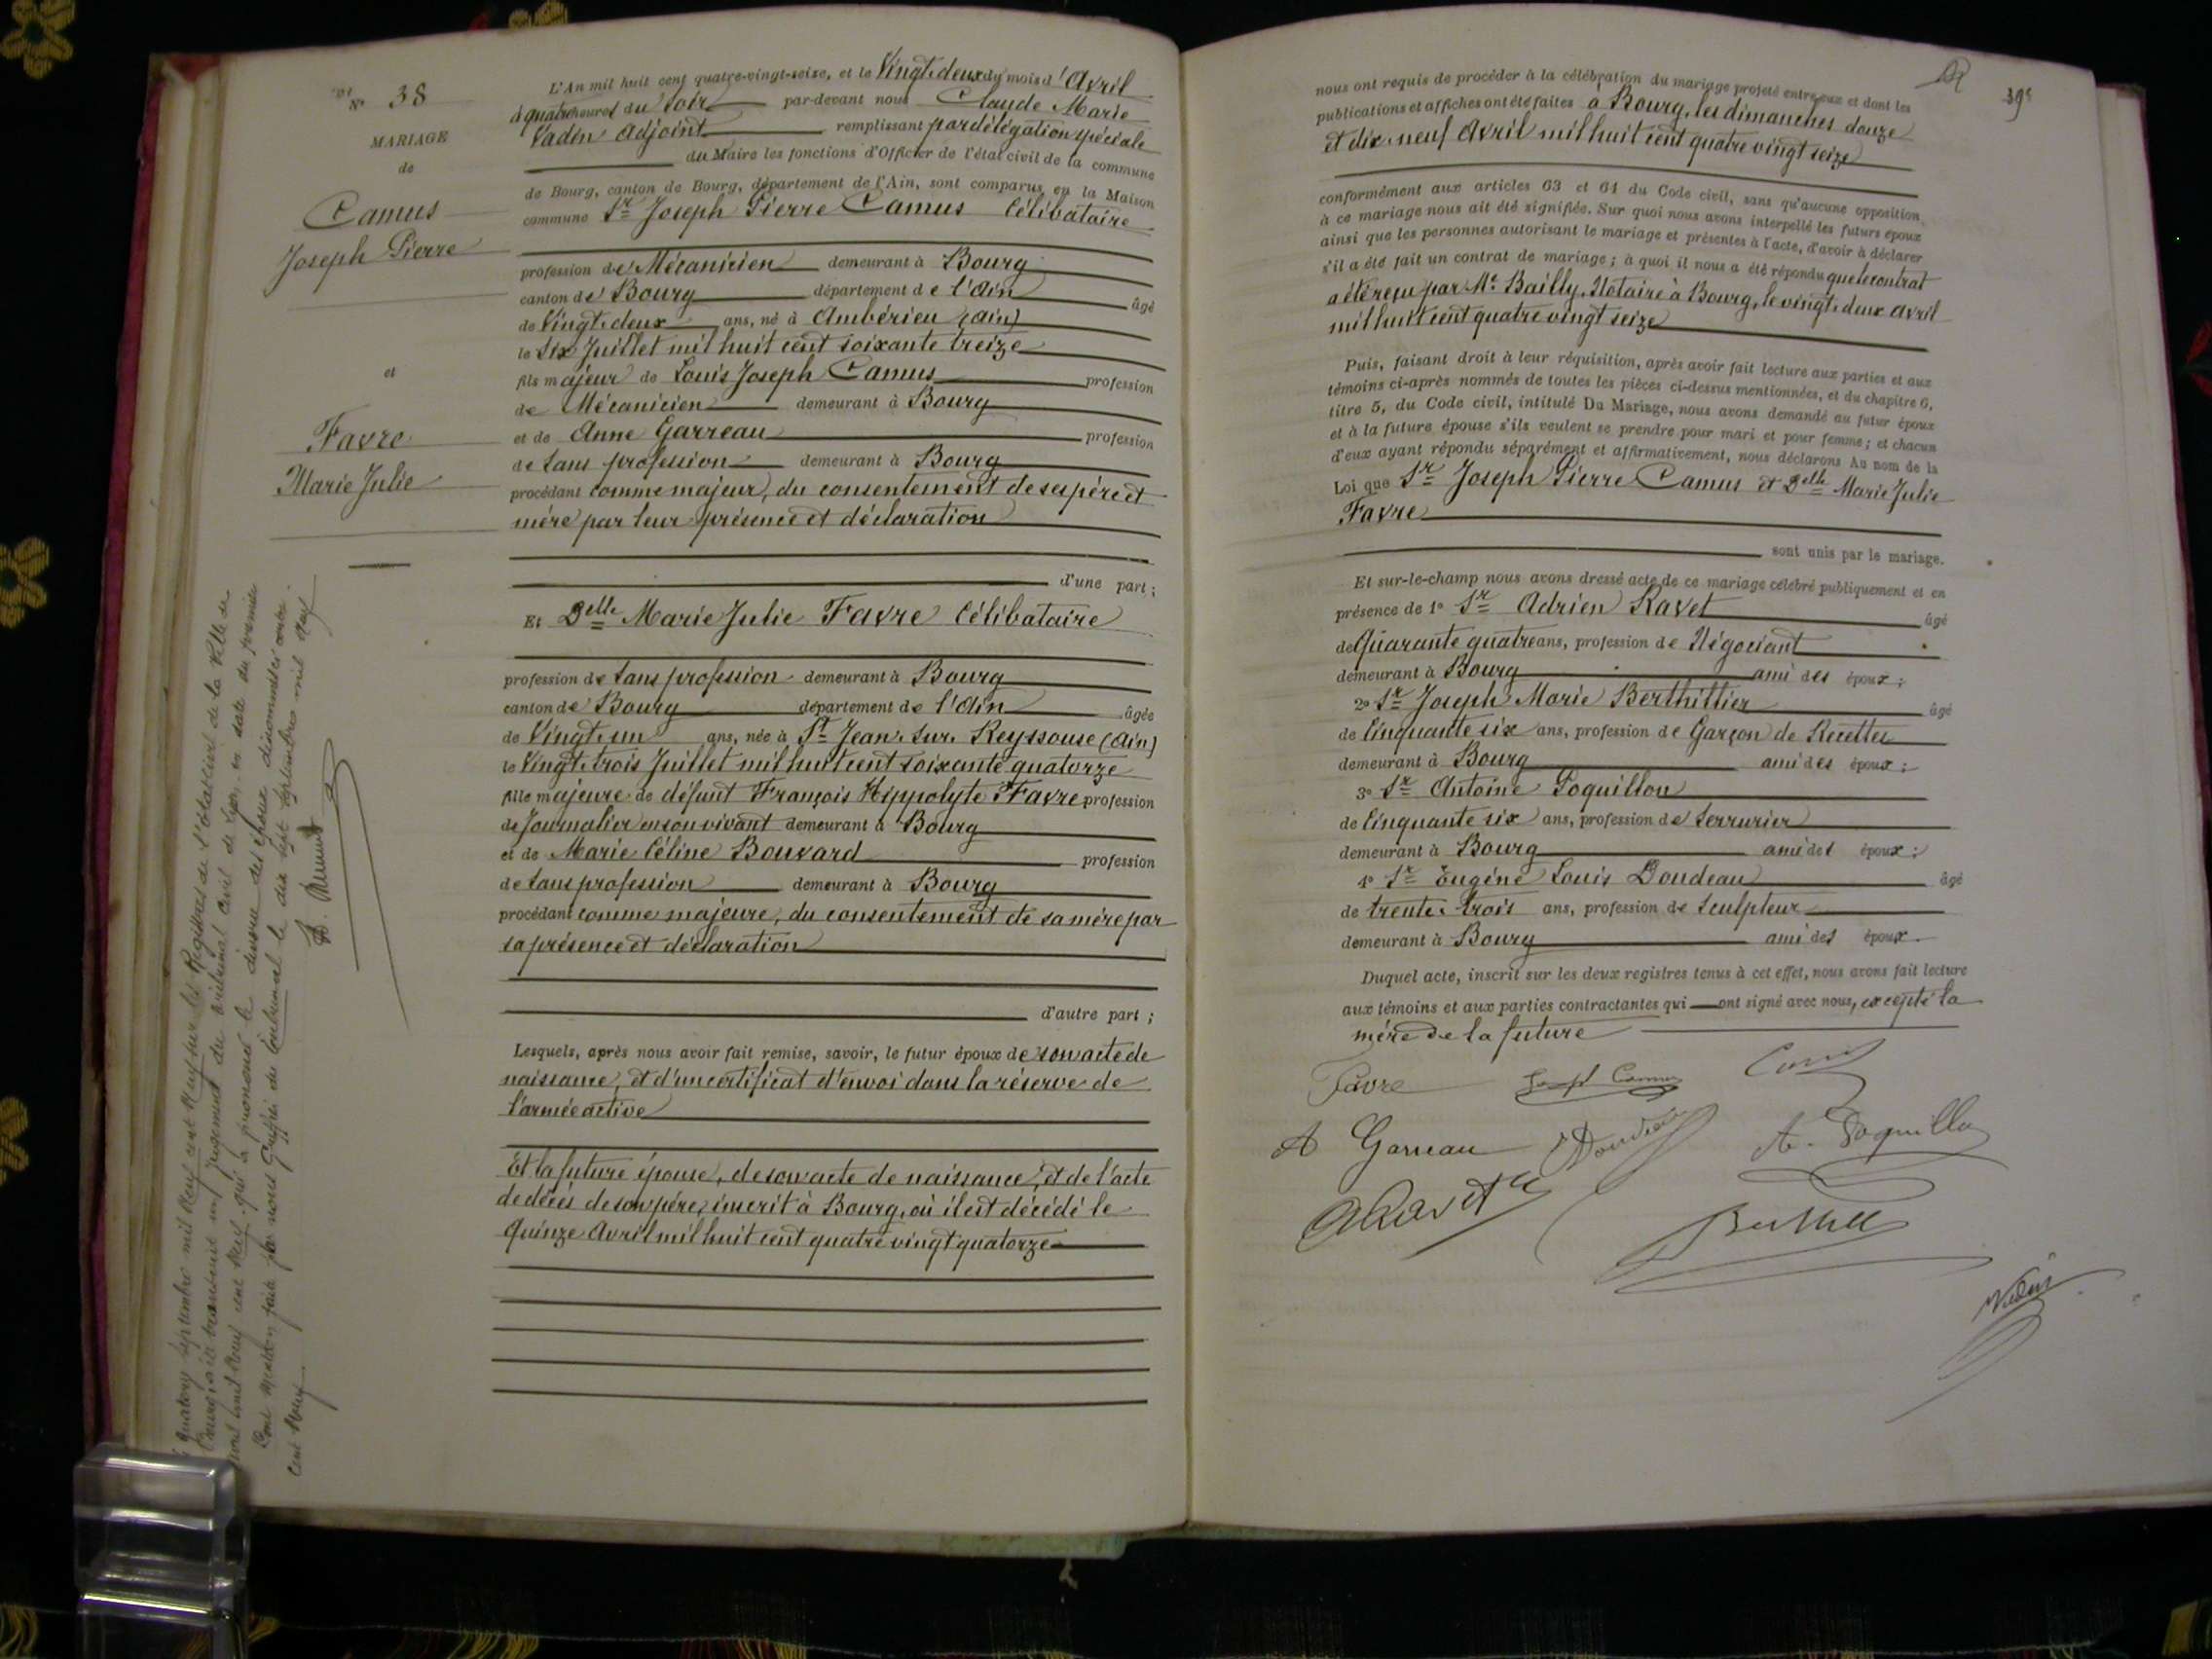 Nº 38
MARIAGE
de
Camus
Joseph Pierre
et
Favre
Marie Julie
L'An mil huit cent quatre-vingt-seize, et le Vingt-deux du mois d'Avril
à quatre heures du Soir par-devant nous Claude Marie
Vadin Adjoint remplissant par délégation spéciale
du Maire les fonctions d'Officier de l'état civil de la commune
de Bourg, canton de Bourg, département de l'Ain, sont comparus en la Maison
commune Sr Joseph Pierre Camus Célibataire
profession de Mécanicien demeurant à Bourg
canton de Bourg département de l'Ain âgé
de Vingt-deux ans, né à Ambérieu (Ain)
le Six Juillet mil huit cent soixante treize
fils majeur de Louis Joseph Camus profession
de Mécanicien demeurant à Bourg
et de Anne Garreau profession
de Sans profession demeurant à Bourg
procédant comme majeur, du consentement de ses père et
mère par leur présence et déclaration
d'une part ;
Et Delle Marie Julie Favre Célibataire
profession de Sans profession demeurant à Bourg
canton de Bourg département de l'Ain âgée
de Vingt-un ans, née à St Jean-Sur-Reyssouse (Ain)
le Vingt-trois Juillet mil huit cent soixante quatorze
fille majeure de défunt François Hippolyte Favre profession
de Journalier en son vivant demeurant à Bourg
et de Marie Céline Bouvard profession
de Sans profession demeurant à Bourg
procédant comme majeure, du consentement de sa mère par
sa présence et déclaration
d'autre part ;
Lesquels, après nous avoir fait remise, savoir, le futur époux de son acte de
naissance, et d'un certificat d'envoi dans la réserve de
l'armée active
Et la future épouse, de son acte de naissance, et de l'acte
de décès de son père, inscrit à Bourg, où il est décédé le
quinze Avril mil huit cent quatre vingt quatorze
quatorze septembre mil neuf cent neuf sur les Registres de l'état civil de la Ville de
transcrit un jugement du tribunal civil de Lyon, en date du premier
avril mil neuf cent neuf, qui a prononcé le divorce des époux dénommés ci contre.
Dont mention faite par nous Greffier du Tribunal le dix sept septembre mil neuf
cent neuf.
39e
nous ont requis de procéder à la célébration du mariage projeté entre eux et dont les
publications et affiches ont été faites à Bourg, les dimanches douze
et dix-neuf Avril mil huit cent quatre vingt seize
conformément aux articles 63 et 64 du Code civil, sans qu'aucune opposition
à ce mariage nous ait été signifiée. Sur quoi nous avons interpellé les futurs époux
ainsi que les personnes autorisant le mariage et présentes à l'acte, d'avoir à déclarer
s'il a été fait un contrat de mariage ; à quoi il nous a été répondu que le contrat
a été reçu par Me Bailly, Notaire à Bourg, le vingt-deux avril
mil huit cent quatre vingt seize
Puis, faisant droit à leur réquisition, après avoir fait lecture aux parties et aux
témoins ci-après nommés de toutes les pièces ci-dessus mentionnées, et du chapitre 6,
titre 5, du Code civil, intitulé Du Mariage, nous avons demandé au futur époux
et à la future épouse s'ils veulent se prendre pour mari et pour femme ; et chacun
d'eux ayant répondu séparément et affirmativement, nous déclarons Au nom de la
Loi que Sr Joseph Pierre Camus et Delle Marie Julie
Favre
sont unis par le mariage.
Et sur-le-champ nous avons dressé acte de ce mariage célébré publiquement et en
présence de 1º Sr Adrien Ravet âgé
de Quarante quatre ans, profession de Négociant
demeurant à Bourg ami des époux ;
2º Sr Joseph Marie Berthillier âgé
de Cinquante six ans, profession de Garçon de Recettes
demeurant à Bourg ami des époux ;
3º Sr Antoine Poquillon
de Cinquante six ans, profession de Serrurier
demeurant à Bourg ami des époux ;
4º Sr Eugène Louis Doudeau âgé
de trente-trois ans, profession de Sculpteur
demeurant à Bourg ami des époux.
Duquel acte, inscrit sur les deux registres tenus à cet effet, nous avons fait lecture
aux témoins et aux parties contractantes qui ont signé avec nous, excepté la
mère de la future
Favre
Joseph Camus
A Garreau
Doudeau
A. Poquillon
Vadin